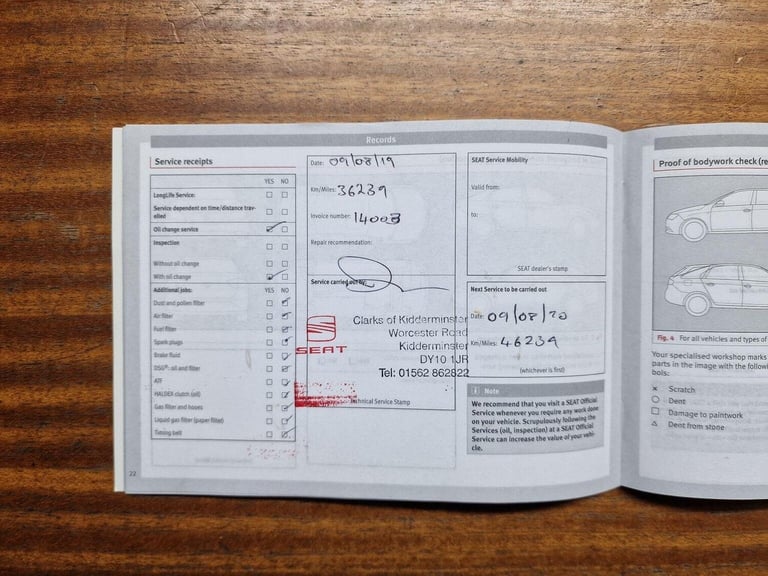 Records
Service receipts
YES NO
LongLife Service:
Service dependent on time/distance trav-
elled
Oil change service
Inspection
Without oil change
With oil change
Additional jobs: YES NO
Dust and pollen filter
Air filter
Fuel filter
Spark plugs
Brake fluid
DSG®: oil and filter
ATF
HALDEX clutch (oil)
Gas filter and hoses
Liquid gas filter (paper filter)
Timing belt
22
Date: 09/08/19
Km/Miles: 36239
Invoice number: 14003
Repair recommendation:
Service carried out by:
SEAT
Clarks of Kidderminster
Worcester Road
Kidderminster
DY10 1JR
Tel: 01562 862822
Technical Service Stamp
SEAT Service Mobility
Valid from:
to:
SEAT dealer's stamp
Next Service to be carried out
Date: 09/08/20
Km/Miles: 46239
(whichever is first)
i Note
We recommend that you visit a SEAT Official
Service whenever you require any work done
on your vehicle. Scrupulously following the
Services (oil, inspection) at a SEAT Official
Service can increase the value of your vehi-
cle.
Proof of bodywork check (re
Fig. 4 For all vehicles and types of
Your specialised workshop marks
parts in the image with the follow
bols:
× Scratch
○ Dent
□ Damage to paintwork
△ Dent from stone